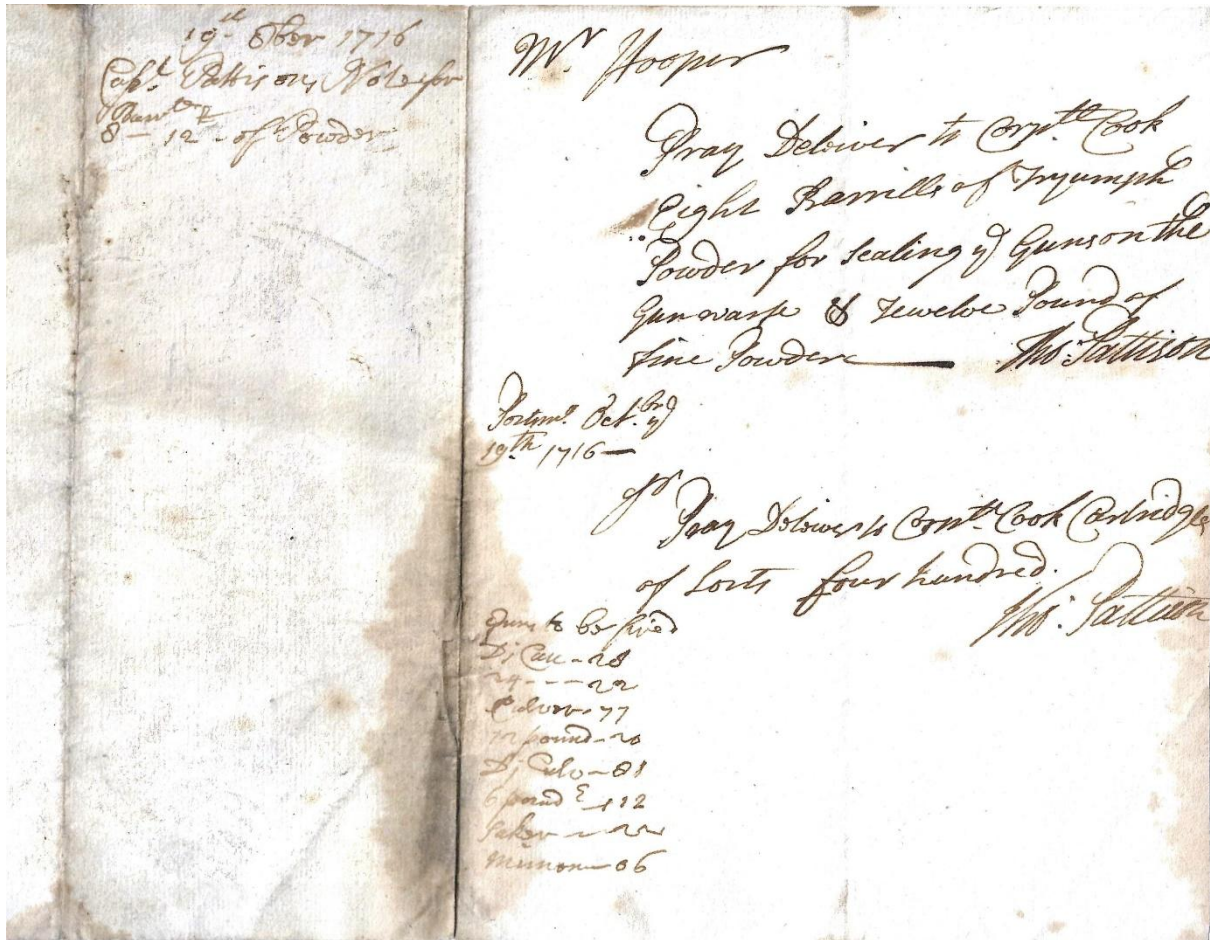 19th 8ber 1716
Capt. Pattisons Note for
8 - 12 - of Powder
Mr Hooper
Pray Deliver to Corpll Cook
Eight Barrills of Tryumph
Powder for Scaling ye Guns on the
Gunwarfe & Tewelve Pound of
fine Powder — Tho: Pattison
Portsmo. Octbr. ye
19th. 1716 —
Sr
Pray Deliver to Corpll. Cook Cartridges
of Sorts four hundred.
Tho: Pattison
Guns to be fired
Dj Can - 28
24 - - - 22
Culver - 77
12 pound - 20
Dj Culv - 81
6 pound - 112
Saker - 22
Minion - 06